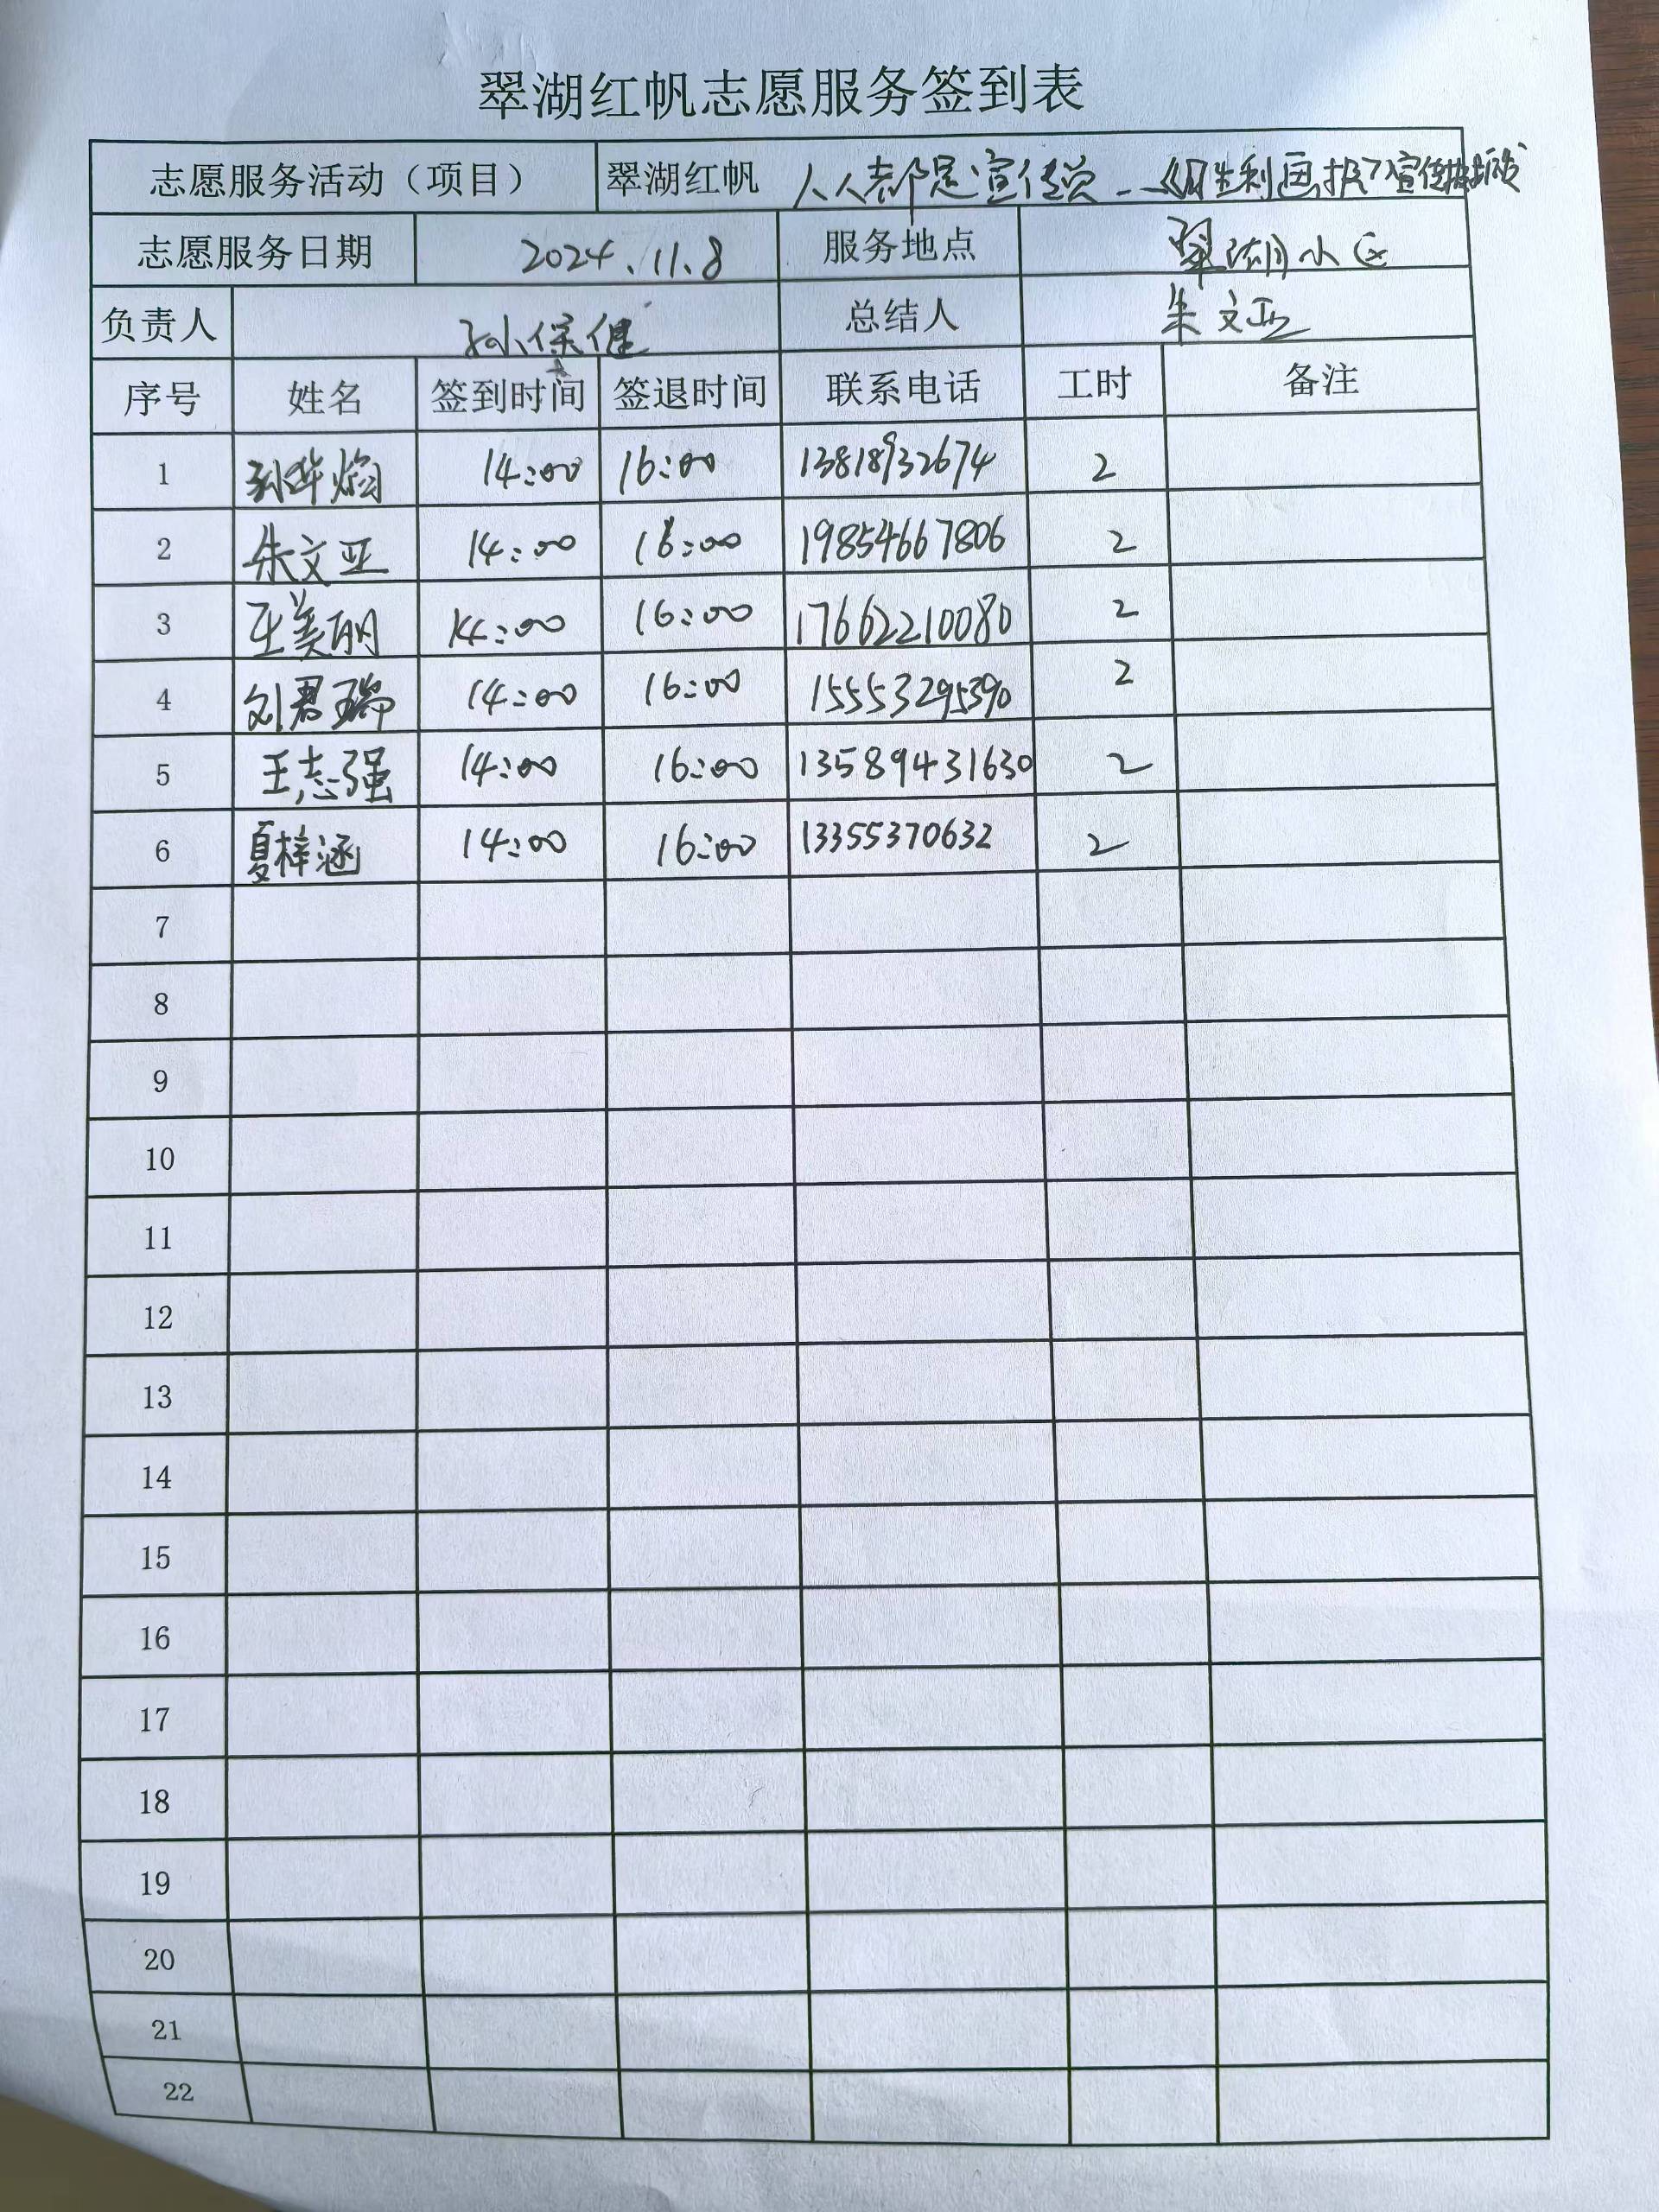 翠湖红帆志愿服务签到表
志愿服务活动（项目） 翠湖红帆 人人都是宣传员
志愿服务日期 2024.11.8 服务地点 翠湖小区
负责人 孙保健 总结人 朱文亚
序号 姓名 签到时间 签退时间 联系电话 工时 备注
1 14:00 16:00 13818932674 2
2 朱文亚 14:00 16:00 19854667806 2
3 王美丽 14:00 16:00 17662210080 2
4 刘君瑞 14:00 16:00 15553295390 2
5 王志强 14:00 16:00 13589431630 2
6 夏梓涵 14:00 16:00 13355370632 2
7
8
9
10
11
12
13
14
15
16
17
18
19
20
21
22